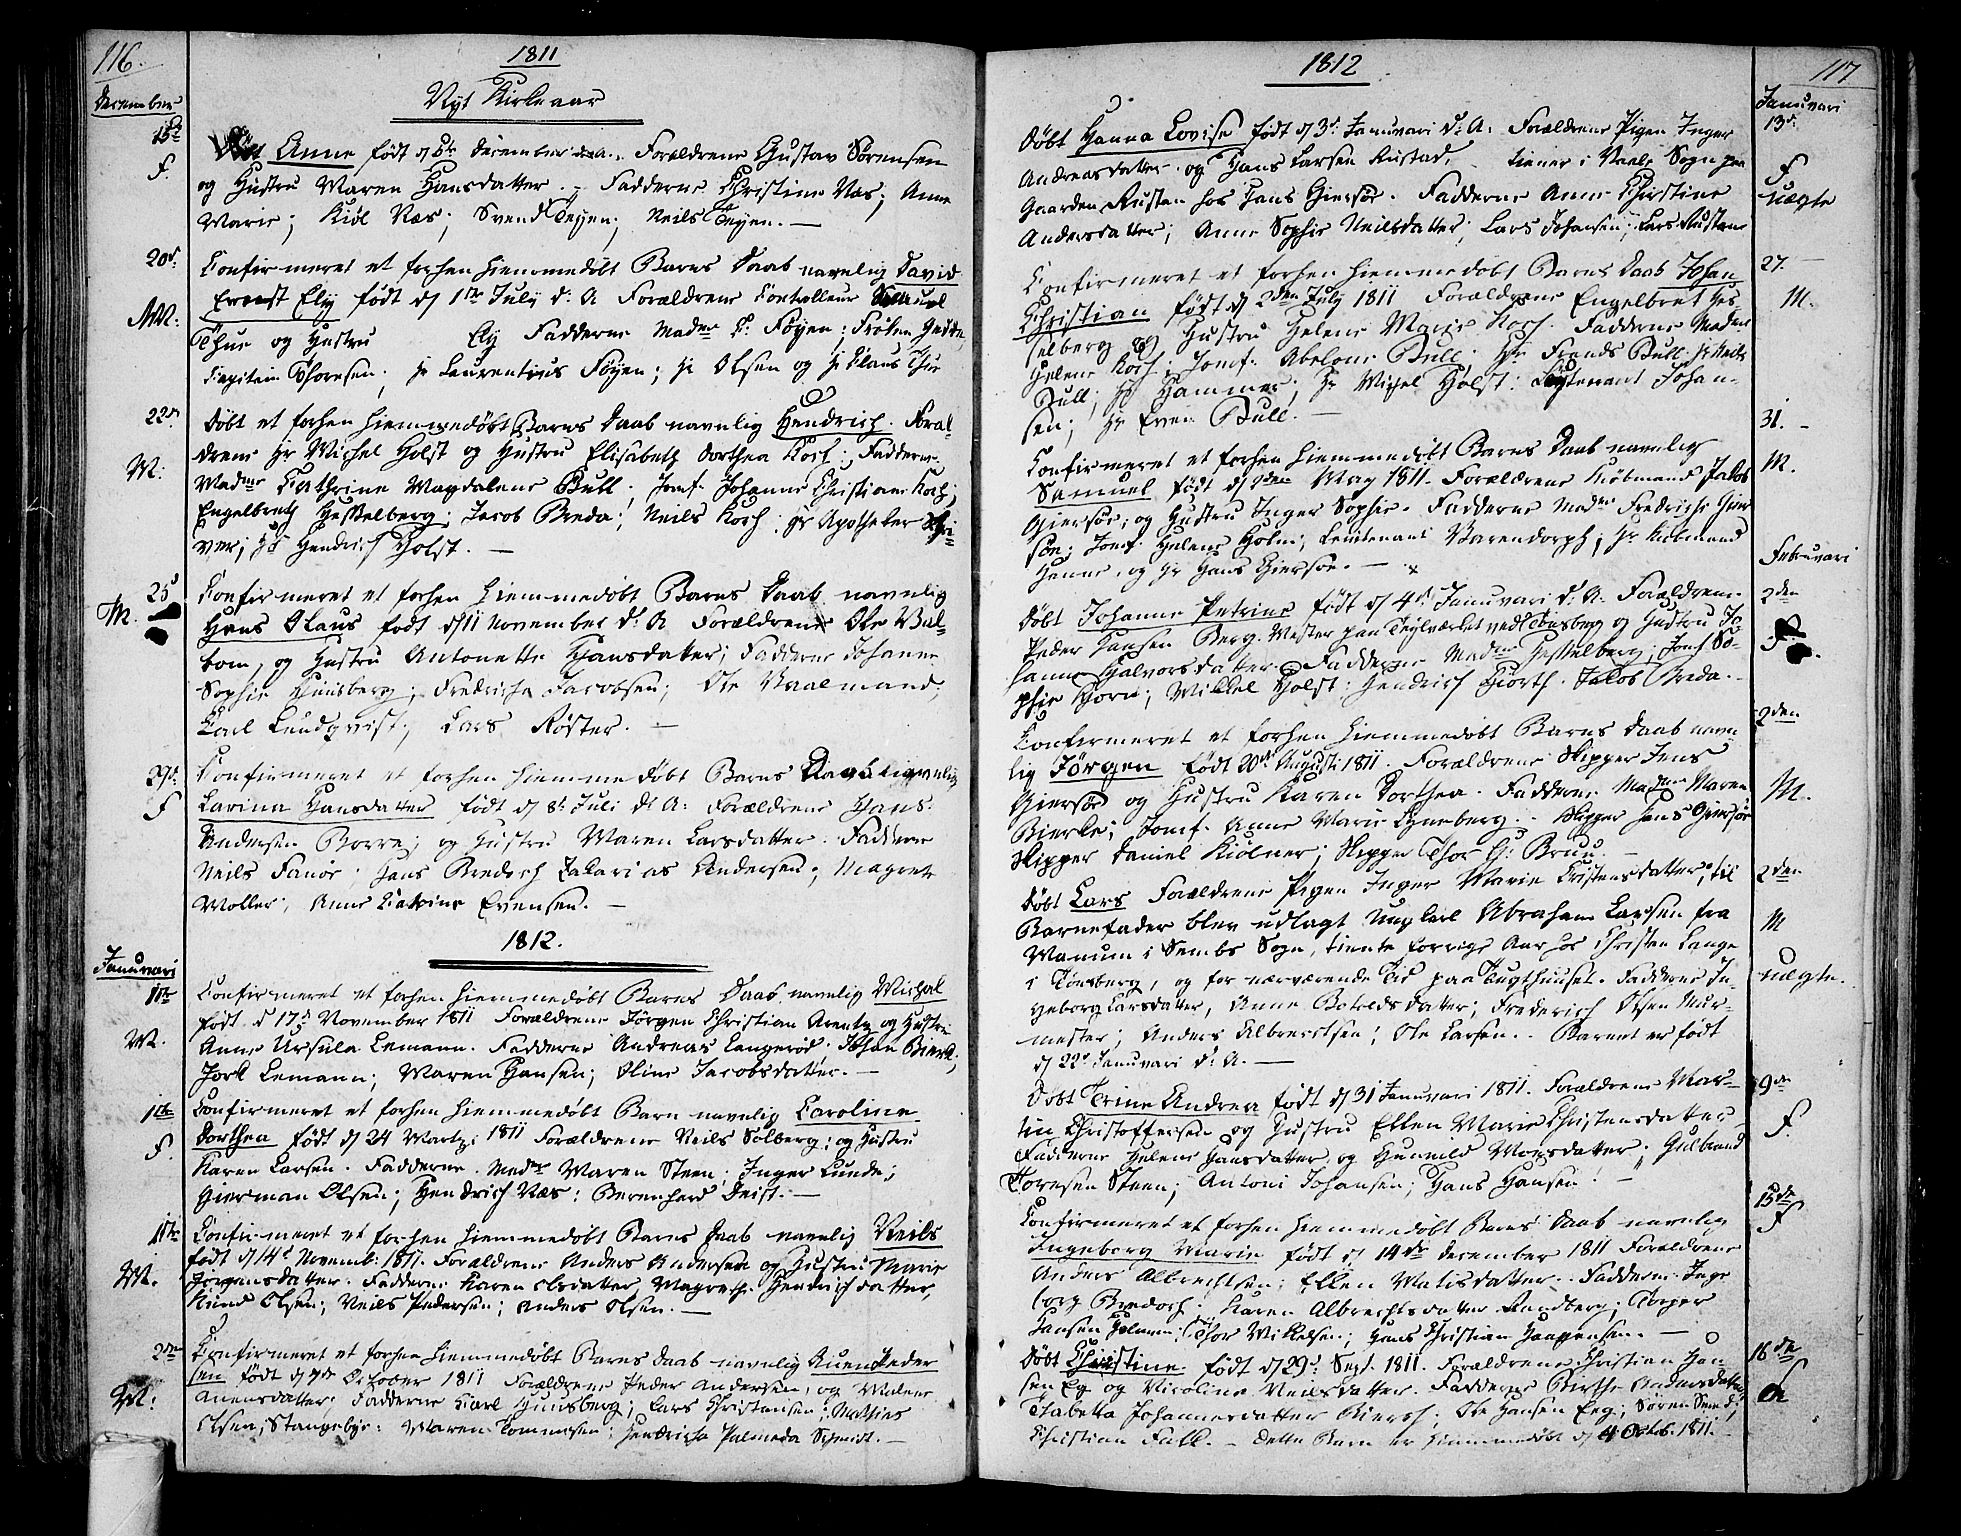 116.
1811
Nyt Kirkeaar
December
15de
F.
Døbt Anne født d 6te December d: A. Forældrene Gustav Sørensen
og Hustru Maren Hansdatter. Fadderne Christine Næs; Anne
Marie; Kiøl Næs; Svend Teyen; Neils Teyen. —
20d.
M:
Confirmeret et forhen hiemmedøbt Barns Daab navnlig David
Ernst Ely født d 1te July d: A Forældrene Controlleur Samuel
Thue og Hustru Ely Fadderne Madme C: Føyen; Frøken
Capitein Thoresen; Hr Laurentius Føyen; Hr Olsen og Hr Claus Thue
22d.
M:
Døbt et forhen hiemmedøbt Barns Daab navnlig Hendrich. Foræl-
drene Hr Michel Holst og Hustru Elisabeth Dorthea Koch; Fadderne
Madme Cathrine Magdalene Bull; Jomf: Johanne Christiane Koch;
Engelbreth Hesselberg; Jacob Breda; Neils Koch; Hr Apotheker Schri-
ver; Hr Hendrich Holst. —
25d
M.
Confirmeret et forhen hiemmedøbt Barns Daab navnlig
Hans Olaus født d 11 November d: A Forældrene Ole Bul-
bom, og Hustru Antonette Hansdatter; Fadderne Johanne
Sophie Hunsberg; Fredricha Jacobsen; Ole Vaalmand;
Carl Lundqvist; Lars Røster. —
29d.
F
Confirmeret et forhen hiemmedøbt Barns Daab navnlig
Larina Hansdatter født d 8d Juli d: A: Forældrene Hans
Andersen Borre; og Hustru Maren Larsdatter. Fadderne
Neils Fanøe; Hans Bredoch Zakarias Andersen; Magrete
Møller; Anne Catrine Evensen. —
1812.
Januari
1te
M.
Confirmeret et forhen hiemmedøbt Barns Daab navnlig Michal
født d 17d November 1811 Forældrene Jørgen Christian Arentz og Hustru
Anne Ursula Lemann. Fadderne Andreas Langerød; Johan Bierk;
Jork Lemann; Maren Hansen; Oline Jacobsdatter. —
1te
F.
Confirmeret et forhen hiemmedøbt Barn navnlig Caroline
Dorthea født d 24 Martz: 1811 Forældrene Neils Solberg; og Hustru
Karen Larsen. Fadderne Madme Maren Steen; Inger Lunde;
Gierman Olsen; Hendrich Næs; Berenhard Deist. —
1te
M.
Confirmeret et forhen hiemmedøbt Barns Daab navnlig Neils
født d 14d Novemb: 1811. Forældrene Anders Andersen og Hustru Marie
Jørgensdatter. Fadderne Karen Olsdatter Magrethe Hendrichsdatter,
Knud Olsen; Neils Pedersen; Anders Olsen. —
2den
M:
Confirmeret et forhen hiemmedøbt Barns Daab navnlig Auen Peder
sen født d 7de October 1811 Forældrene Peder Andersen, og Malene
Auensdatter. Fadderne Karl Hunsberg; Lars Christensen; Mathies
Olsen; Stangebye: Maren Tommesen; Hendricha Palmeda Schmidt. —
1812
117
Januari
13d.
F
uægte
Døbt Hanna Lovise født d 3d Januari d: A: Forældrene Pigen Inger
Andreasdatter og Hans Larsen Rustad, tiener i Vaale Sogn paa
Gaarden Rustan hos Hans Giersøe. Fadderne Anne Christine
Andersdatter; Anne Sophie Neilsdatter; Lars Johansen; Lars Rustan
27. —
M.
Confirmeret et forhen hiemmedøbt Barns Daab Johan
Christian født d 2den July 1811 Forældrene Engelbret Hes
selberg og Hustru Helene Marie Koch. Fadderne Madme
Helene Koch; Jomf: Abelone Bull; Hr Frends Bull; Hr Neils
Bull; Hr Hammer; Hr Michel Holst; Leutenant Johan-
sen; Hr Even Bull. —
31. —
M.
Confirmeret et forhen hiemmedøbt Barns Daab navnlig
Samuel født d 2den May 1811. Forældrene Kiøbmand Jakob
Giersøe, og Hustru Inger Sophie. Fadderne Madme Fredriche Gier
søe; Jomf: Helene Holm; Leutenant Barendorph; Hr Kiøbmand
Henne, og Hr Hans Giersøe. —
Februari
2den
F.
Døbt Johanne Petrine født d 4d Januari d: A: Forældrene
Peder Hansen Berg. Mester paa Teylverket ved Tønsberg og Hustru Jo
hanne Halvorsdatter. Fadderne Madme Hesselberg; Jomf So-
phie Horn; Mikkel Holst; Hendrich Hiorth. Jakob Breda. —
2den
M.
Confirmeret et forhen hiemmedøbt Barns Daab navn
lig Jørgen født 20de Augusti 1811. Forældrene Skipper Jens
Giersøe og Hustru Karen Dorthea. Fadderne Madme Maren
Bierke; Jomf: Anne Marie Lyneberg. Skipper Hans Giersøe
Skipper Daniel Kiølner; Skipper Thor G: Bruu. —
2den
M
uægte.
Døbt Lars Forældrene Pigen Inger Marie Cristensdatter; til
Barnefader blev udlagt Ungkarl Abraham Larsen fra
Manum i Sembs Sogn, tiente forrige Aar hos Christen Lange
i Tønsberg, og for nærværende Tid paa Tugthuuset. Fadderne In
geborg Larsdatter, Anne Botoldsdatter; Frederich Olsen Mur-
mester; Anders Albrectsen; Ole Larsen. Barnet er født
d 22d Januari d: A. —
9de
F.
Døbt Trine Andrea født d 31 Januari 1811. Forældrene Mar-
tin Christoffersen og Hustru Ellen Marie Christensdatter
Fadderne Helene Hansdatter og Gunnild Monsdatter; Gulbrand
Toresen Steen; Antoni Johansen; Hans Hansen. —
15de
F
Confirmeret et forhen hiemmedøbt Barns Daab navnlig
Ingeborg Marie født d 14de December 1811 Forældrene
Anders Albrechtsen; Ellen Matisdatter. Fadderne Inge
borg Bredoch. Karen Albrechtsdatter Rundberg; Torger
Hansen Holmen; Thor Mikelsen; Hans Christian Haagensen. —
16de
F
Døbt Christine født d 29d Sept. 1811. Forældrene Christian Han
sen Eg og Nicoline Neilsdatter. Fadderne Birthe Andersdatter
Elsabetta Johannesdatter Bierch; Ole Hansen Eeg; Søren Smed;
Christian Falk. — Dette Barn er hiemmedøbt d 4 Octob. 1811. —